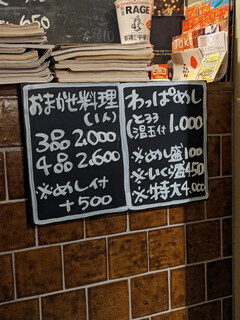 650
RAGE
Taki
おまかせ料理
(1人)
3品 2.000
4品 2.600
※めし付
+500
わっぱめし
とろろ
温玉付 1.000
※めし盛100
※いくら盛450
※特大4.000